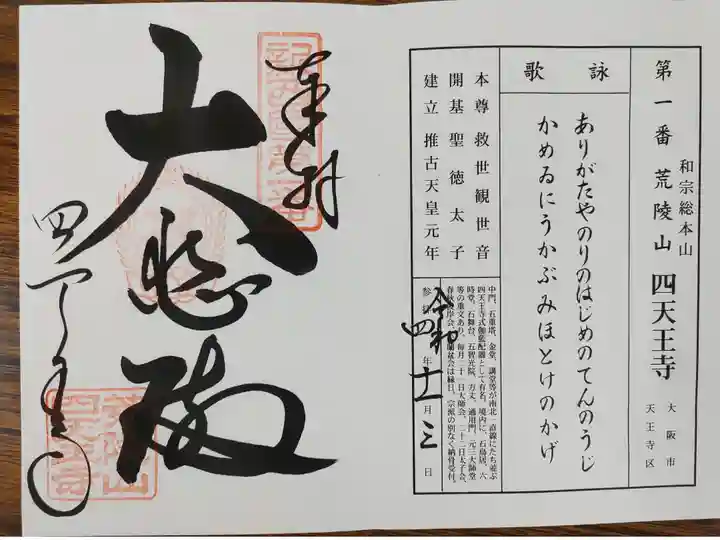 第一番 荒陵山 四天王寺
和宗総本山
大阪市
天王寺区
詠歌
ありがたやのりのはじめのてんのうじ
かめゐにうかぶみほとけのかげ
本尊 救世観世音
開基 聖徳太子
建立 推古天皇元年
中門、五重塔、金堂、講堂等が南北一直線にたち並ぶ
四天王寺式伽藍配置として有名。境内に、石鳥居、六
時堂、石舞台、五智光院、方丈、通用門、元三大師堂
等の重文あり。毎月二十一日大師会、二十二日太子会、
春秋彼岸会、盂蘭盆会は縁日。宗派の別なく納骨受付。
令和四年十一月三日
奉拝
大悲殿
四天王寺